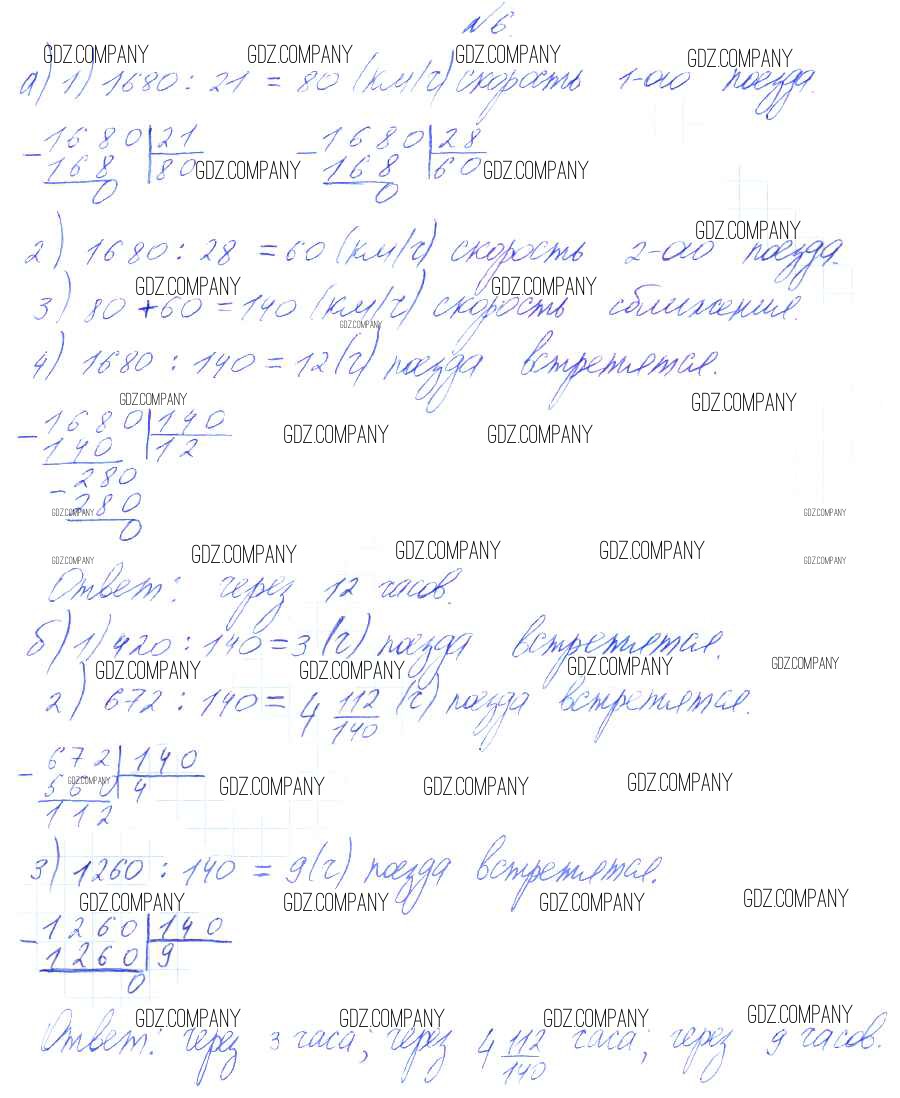 №6.
GDZ.COMPANY GDZ.COMPANY GDZ.COMPANY GDZ.COMPANY
а) 1) 1680 : 21 = 80 (км/ч) скорость 1-ого поезда.
1680 21 1680 28
168 80 GDZ.COMPANY 168 60 GDZ.COMPANY
0 0
GDZ.COMPANY
2) 1680 : 28 = 60 (км/ч) скорость 2-ого поезда.
GDZ.COMPANY GDZ.COMPANY
3) 80 + 60 = 140 (км/ч) скорость сближения.
GDZ.COMPANY
4) 1680 : 140 = 12 (ч) поезда встретятся.
GDZ.COMPANY GDZ.COMPANY
- 1680 140
140 12 GDZ.COMPANY GDZ.COMPANY
- 280
280
GDZ.COMPANY GDZ.COMPANY
0
GDZ.COMPANY GDZ.COMPANY GDZ.COMPANY GDZ.COMPANY GDZ.COMPANY
Ответ: через 12 часов.
б) 1) 420 : 140 = 3 (ч) поезда встретятся.
GDZ.COMPANY GDZ.COMPANY GDZ.COMPANY GDZ.COMPANY
2) 672 : 140 = 4 112/140 (ч) поезда встретятся.
- 672 140
560 4 GDZ.COMPANY GDZ.COMPANY GDZ.COMPANY GDZ.COMPANY
112
3) 1260 : 140 = 9 (ч) поезда встретятся.
GDZ.COMPANY GDZ.COMPANY GDZ.COMPANY GDZ.COMPANY
- 1260 140
1260 9
0
GDZ.COMPANY GDZ.COMPANY GDZ.COMPANY GDZ.COMPANY
Ответ: через 3 часа; через 4 112/140 часа; через 9 часов.